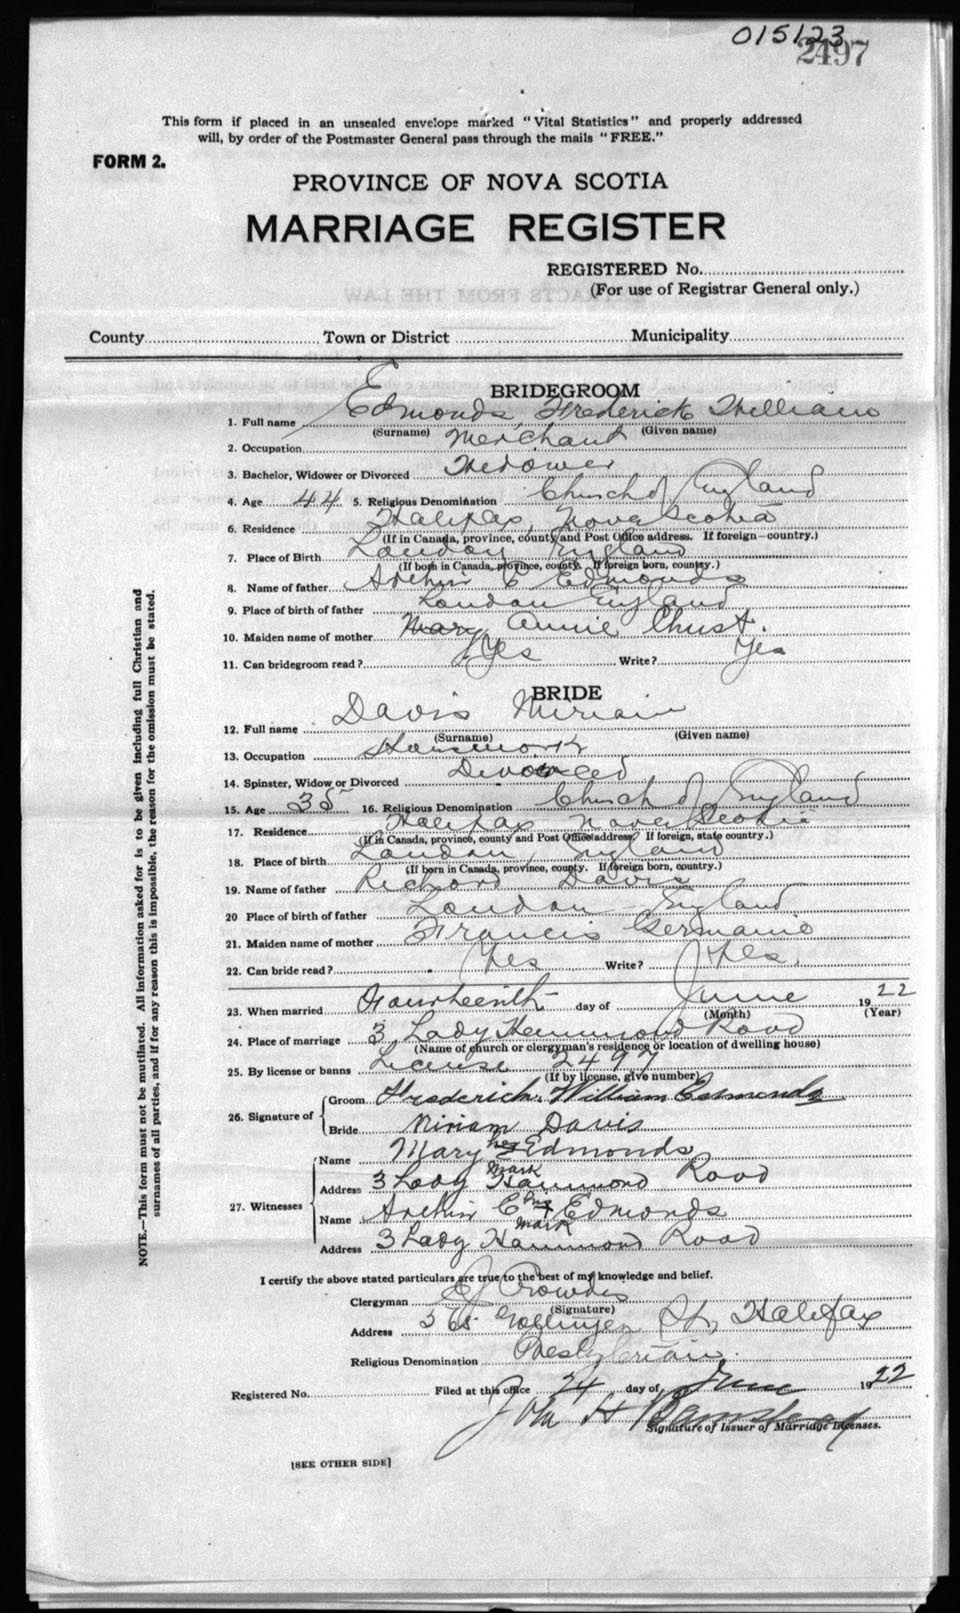 015123
2497
This form if placed in an unsealed envelope marked "Vital Statistics" and properly addressed
will, by order of the Postmaster General pass through the mails "FREE."
FORM 2.
PROVINCE OF NOVA SCOTIA
MARRIAGE REGISTER
REGISTERED No.
(For use of Registrar General only.)
County Town or District Municipality
BRIDEGROOM
1. Full name Edmonds Frederick William
(Surname) (Given name)
2. Occupation Merchant
3. Bachelor, Widower or Divorced Widower
4. Age 44 5. Religious Denomination Church of England
6. Residence Halifax, Nova Scotia
(If in Canada, province, county and Post Office address. If foreign—country.)
7. Place of Birth London England
(If born in Canada, province, county. If foreign born, country.)
8. Name of father Archir C Edmonds
9. Place of birth of father London England
10. Maiden name of mother Mary Annie Chust.
11. Can bridegroom read? Yes Write? Yes
BRIDE
12. Full name Davis Miriam
(Surname) (Given name)
13. Occupation Housework
14. Spinster, Widow or Divorced Divorced
15. Age 35 16. Religious Denomination Church of England
17. Residence Halifax Nova Scotia
(If in Canada, province, county and Post Office address. If foreign, state country.)
18. Place of birth London, England
(If born in Canada, province, county. If foreign born, country.)
19. Name of father Richard Davis
20 Place of birth of father London England
21. Maiden name of mother Francis Germanie
22. Can bride read? Yes Write? Yes.
23. When married Fourteenth day of June 1922
(Month) (Year)
24. Place of marriage 3 Lady Hammond Road
(Name of church or clergyman's residence or location of dwelling house)
25. By license or banns License 2497
(If by license, give number)
26. Signature of Groom Frederick William Edmonds
Bride Miriam Davis
27. Witnesses Name Mary her Edmonds
mark
Address 3 Lady Hammond Road
Name Archir C his Edmonds
mark
Address 3 Lady Hammond Road
I certify the above stated particulars are true to the best of my knowledge and belief.
Clergyman Crowdis
(Signature)
Address St, Halifax
Religious Denomination Presbyterian.
Registered No. Filed at this office 24 day of June 1922
John H Barnstead
Signature of Issuer of Marriage Licenses.
[SEE OTHER SIDE]
NOTE.—This form must not be mutilated. All information asked for is to be given including full Christian and
surnames of all parties, and if for any reason this is impossible, the reason for the omission must be stated.